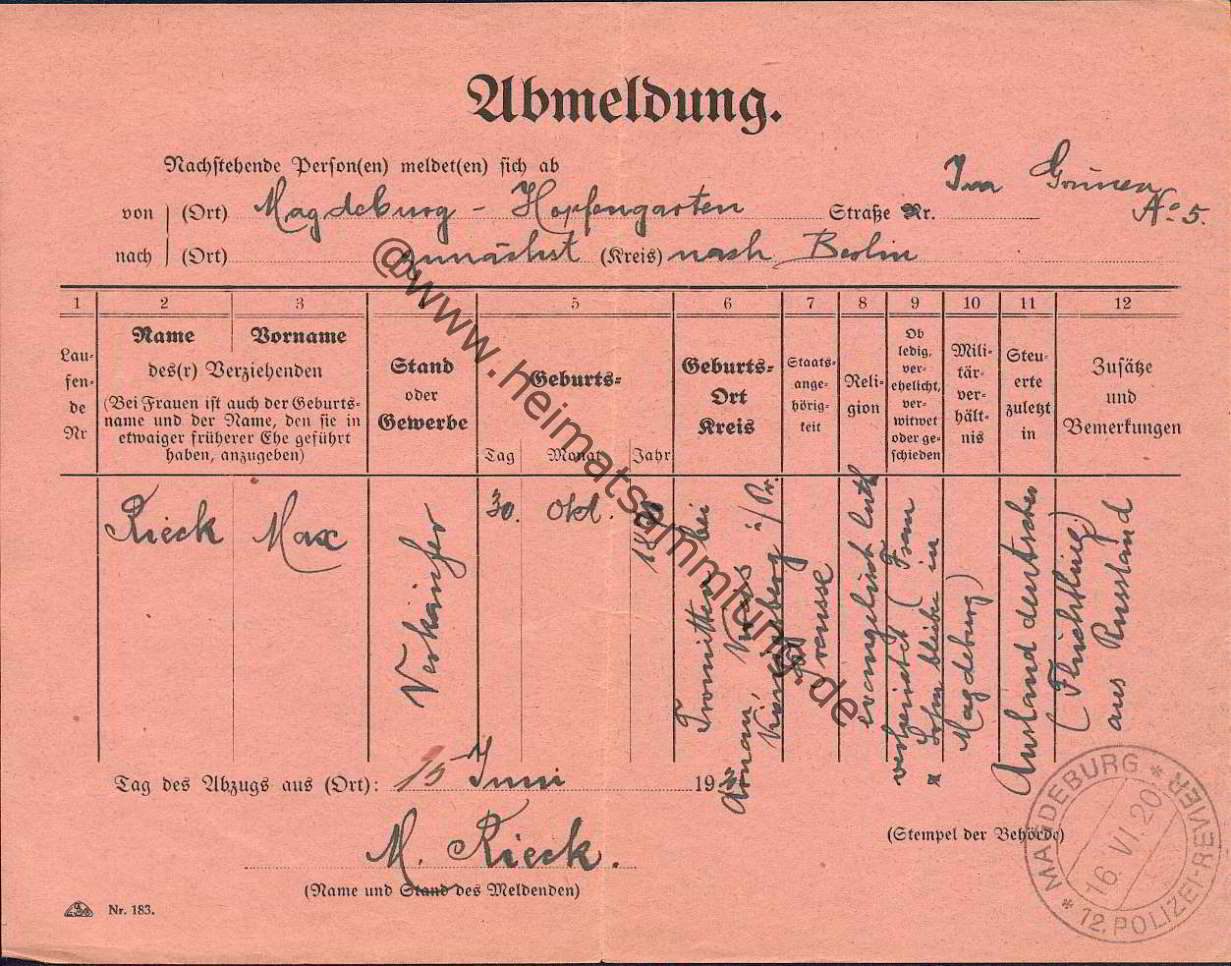 Abmeldung.
Nachstehende Person(en) meldet(en) sich ab
von (Ort) Magdeburg - Hopfengarten Straße Nr. Im Grünen No 5.
nach (Ort) zunächst (Kreis) nach Berlin
1 2 3 4 5 6 7 8 9 10 11 12
Lau-
fen-
de
Nr
Name Vorname
des(r) Verziehenden
(Bei Frauen ist auch der Geburts-
name und der Name, den sie in
etwaiger früherer Ehe geführt
haben, anzugeben)
Stand
oder
Gewerbe
Geburts-
Tag Monat Jahr
Geburts-
Ort
Kreis
Staats-
ange-
hörig-
keit
Reli-
gion
Ob
ledig,
ver-
ehelicht,
ver-
witwet
oder ge-
schieden
Mili-
tär-
ver-
hält-
nis
Steu-
erte
zuletzt
in
Zusätze
und
Bemerkungen
Rieck Max
Verkäufer
30. Okt.
bei
Arnau, Kreis
Königsberg i/Pr.
Preusse
evangelisch luth
verheiratet (Frau
Sohn bleibt in
Magdeburg)
Auslanddeutscher
(Flüchtling)
aus Russland
Tag des Abzugs aus (Ort): 15 Juni 192
M. Rieck.
(Name und Stand des Meldenden)
(Stempel der Behörde)
MAGDEBURG * 12. POLIZEI-REVIER *
16. VI. 20
Nr. 183.
@www.heimatsammlung.de